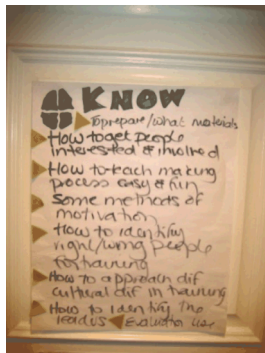 KNOW
To prepare/what materials
How to get people
interested & involved
How to teach making
process easy & fun
Some methods of
motivation
How to identify
right/wrong people
for training
How to approach dif
cultural dif in training
How to identify the
leaders Evaluation use